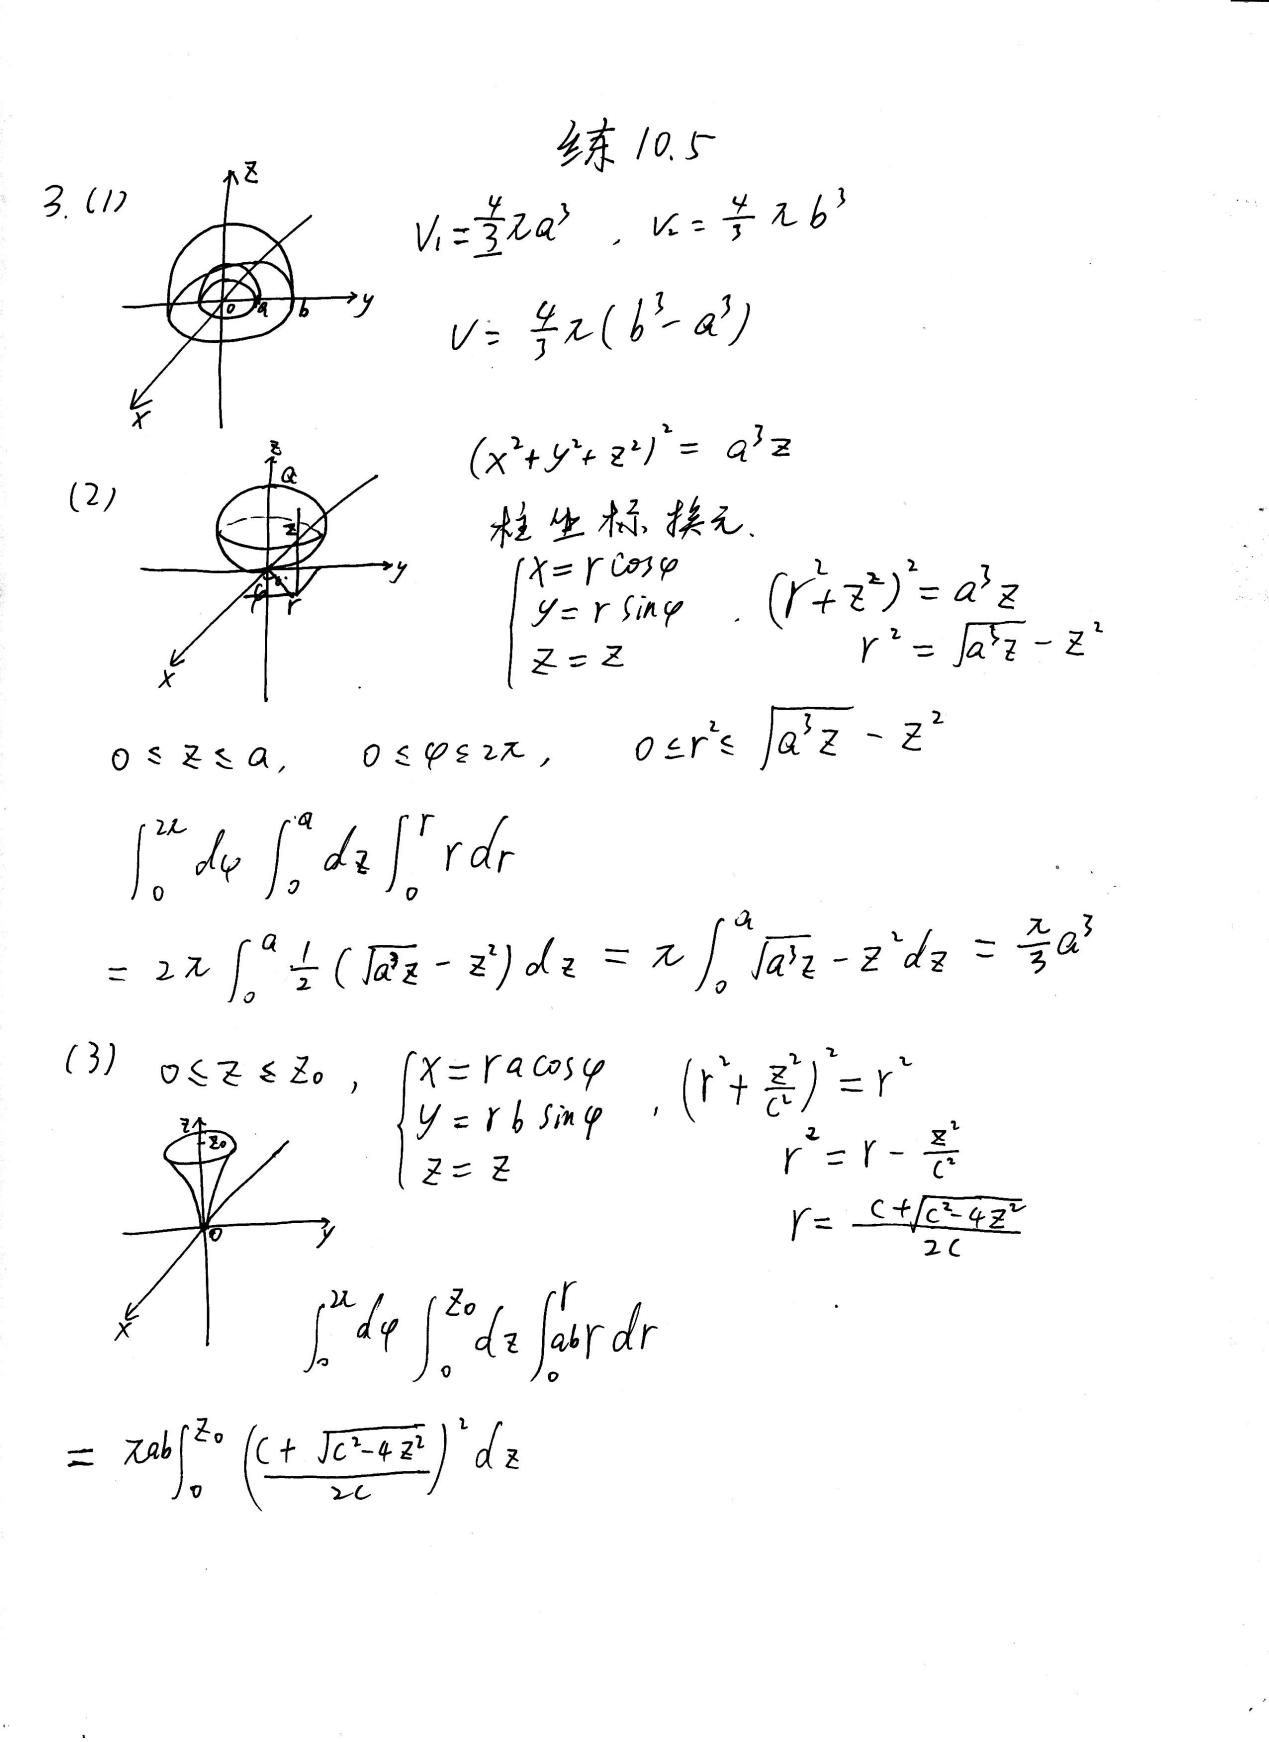 练 10.5
3. (1)
z
0 a b y
x
V₁ = 4/3 πa³ , V₂ = 4/3 πb³
V = 4/3 π(b³ - a³)
(2)
z
a
z
y
φ r
x
(x² + y² + z²)² = a³z
柱坐标换元.
{ x = r cosφ
y = r sinφ . (r² + z²)² = a³z
z = z r² = √(a³z) - z²
0 ≤ z ≤ a, 0 ≤ φ ≤ 2π, 0 ≤ r² ≤ √(a³z) - z²
∫₀^{2π} dφ ∫₀^a dz ∫₀^r r dr
= 2π ∫₀^a 1/2 (√(a³z) - z²) dz = π ∫₀^a √(a³z) - z² dz = π/3 a³
(3) 0 ≤ z ≤ z₀ , { x = r a cosφ , (r² + z²/c²)² = r²
y = r b sinφ r² = r - z²/c²
z = z r = (c + √(c² - 4z²))/(2c)
z
z₀
0 y
x
∫₀^{2π} dφ ∫₀^{z₀} dz ∫₀^r abr dr
= πab ∫₀^{z₀} ((c + √(c² - 4z²))/(2c))² dz